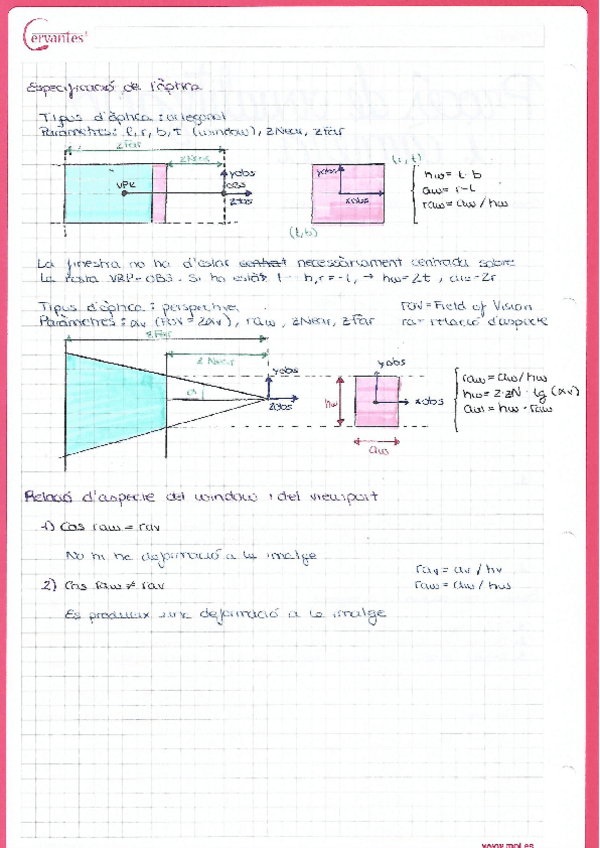 Cervantes
Especificació de l'òptica
Tipus d'òptica : ortogonal
Paràmetres: l, r, b, t (window), zNear, zFar
zFar
zNear
(r, t)
yobs
VRP
OBS
zobs
yobs
xobs
(l, b)
hw = t - b
aw = r - l
raw = aw / hw
La finestra no ha d'estar necessàriament centrada sobre
la recta VRP-OBS. Si ho està, hw = 2t , aw = 2r
Tipus d'òptica : perspectiva
FOV = Field of Vision
Paràmetres : αv (FOV = 2αv), raw, zNear, zFar
ra = relació d'aspecte
zFar
zNear
yobs
zobs
α
hw
yobs
xobs
aw
raw = aw / hw
hw = 2·zN · tg (αv)
aw = hw · raw
Relació d'aspecte del window i del viewport
1) Cas raw = rav
No hi ha deformació a la imatge
rav = av / hv
2) Cas raw ≠ rav
raw = aw / hw
Es produeix una deformació a la imatge